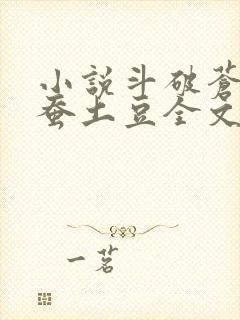 小説斗破蒼
蚕土豆全文
一茗